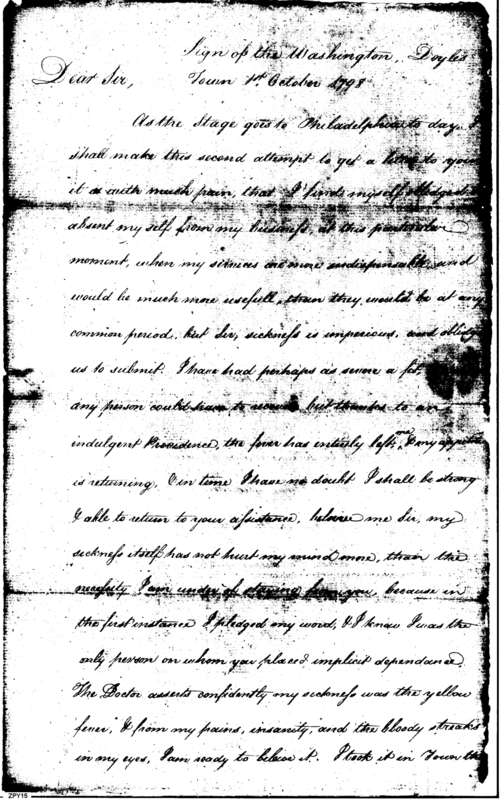 Sign of the Washington, Doyles
Dear Sir, Town 1st. October 1798
As the Stage goes to Philadelphia to day I
shall make this second attempt to get a letter to you
it is with much pain, that I find myself obliged to
absent my self from my business, at this particular
moment, when my services are more indispensable, and
would be much more usefull, than they would be at any
common period, but Sir, sickness is imperious, and oblidg
us to submit. I have had perhaps as severe a fit
any person could have to recover, but thanks to an
indulgent Providence, the fever has entirely left me, & my appetite
is returning, & in time I have no doubt I shall be strong
& able to return to your assistance, believe me Sir, my
sickness itself has not hurt my mind more, than the
necessity I am under of staying from you, because in
the first instance I pledged my word, & I knew I was the
only person on whom you placed implicit dependance.
The Doctor asserts confidently my sickness was the yellow
fever, & from my pains, insanity, and the bloody streaks
in my eyes, I am ready to believe it. I took it in Town the
ZPY15